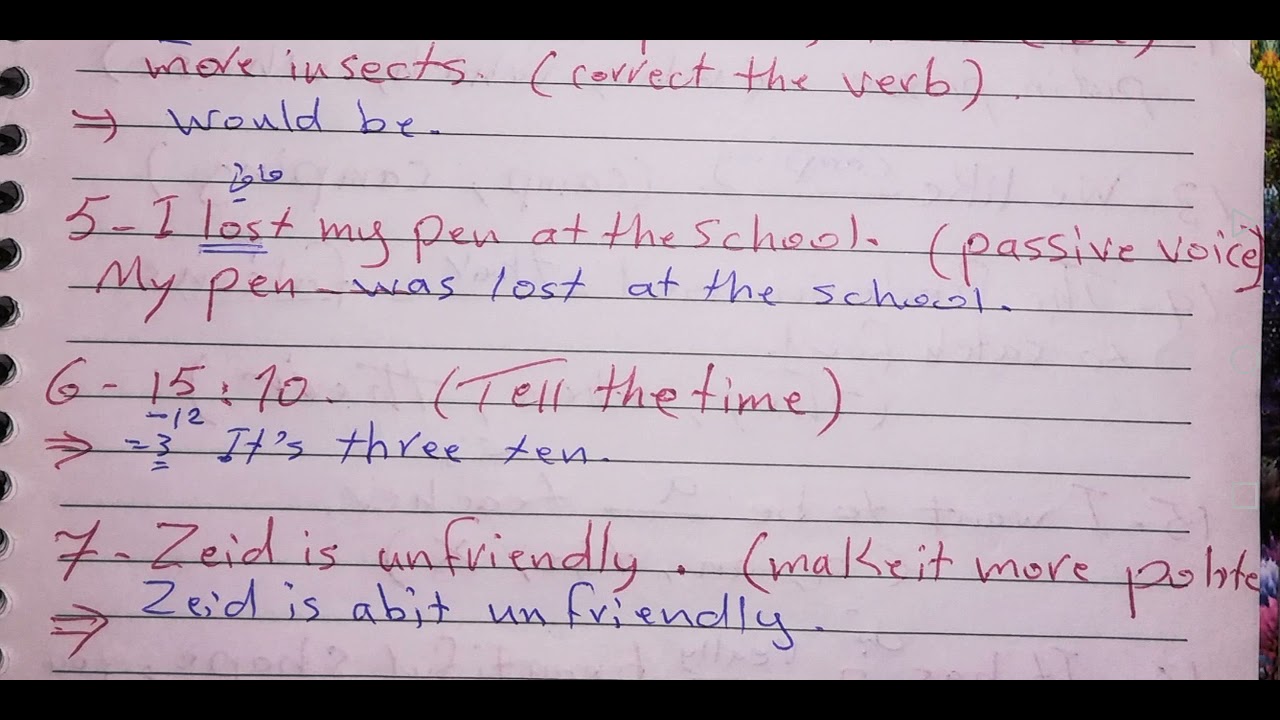 more insects. (correct the verb).
⇒ would be.
5- I lost my pen at the school. (passive voice)
My pen was lost at the school.
6- 15:10. (Tell the time)
-12
⇒ =3 It's three ten.
7- Zeid is unfriendly. (make it more polite
⇒ Zeid is abit unfriendly.